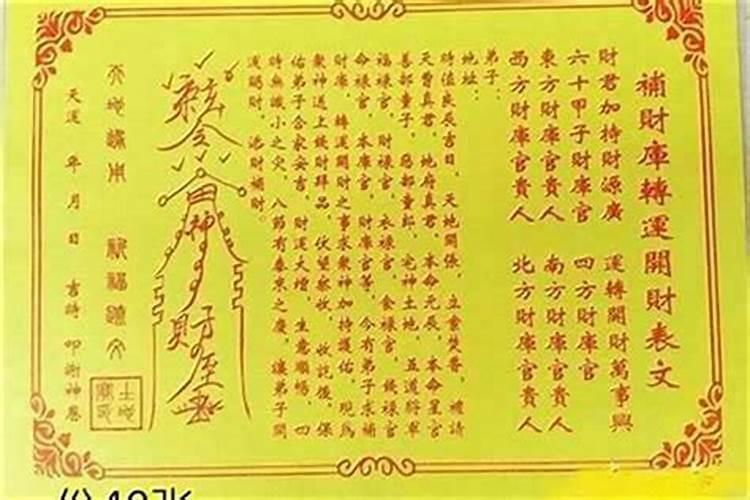 補財庫轉運開財表文
財君加持財源廣 運轉開財萬事興
六十甲子財庫官 四方財庫官
東方財庫官貴人 南方財庫官貴人
西方財庫官貴人 北方財庫官貴人
弟子:
地址:
時值良辰吉日，天地開張，立案焚香，禮請
天曹真君，地府真君，本命元辰，本命星官
善部童子，惡部童郎，宅神土地，五道將軍
福祿官，財祿官，衣祿官，食祿官，錢祿官
命祿官，本庫官，財庫官等，今有弟子求補
財庫，轉運開財之事求眾神加持護佑，現為
眾神送上錢財拜品，伏望察收，收訖後，保
佑弟子合家安吉，財運大增，生意順暢，四
時無纖小之災，八節有泰來之慶，讓弟子開
運賜財，添財補財。
天運 年 月 日 吉時 叩謝神恩